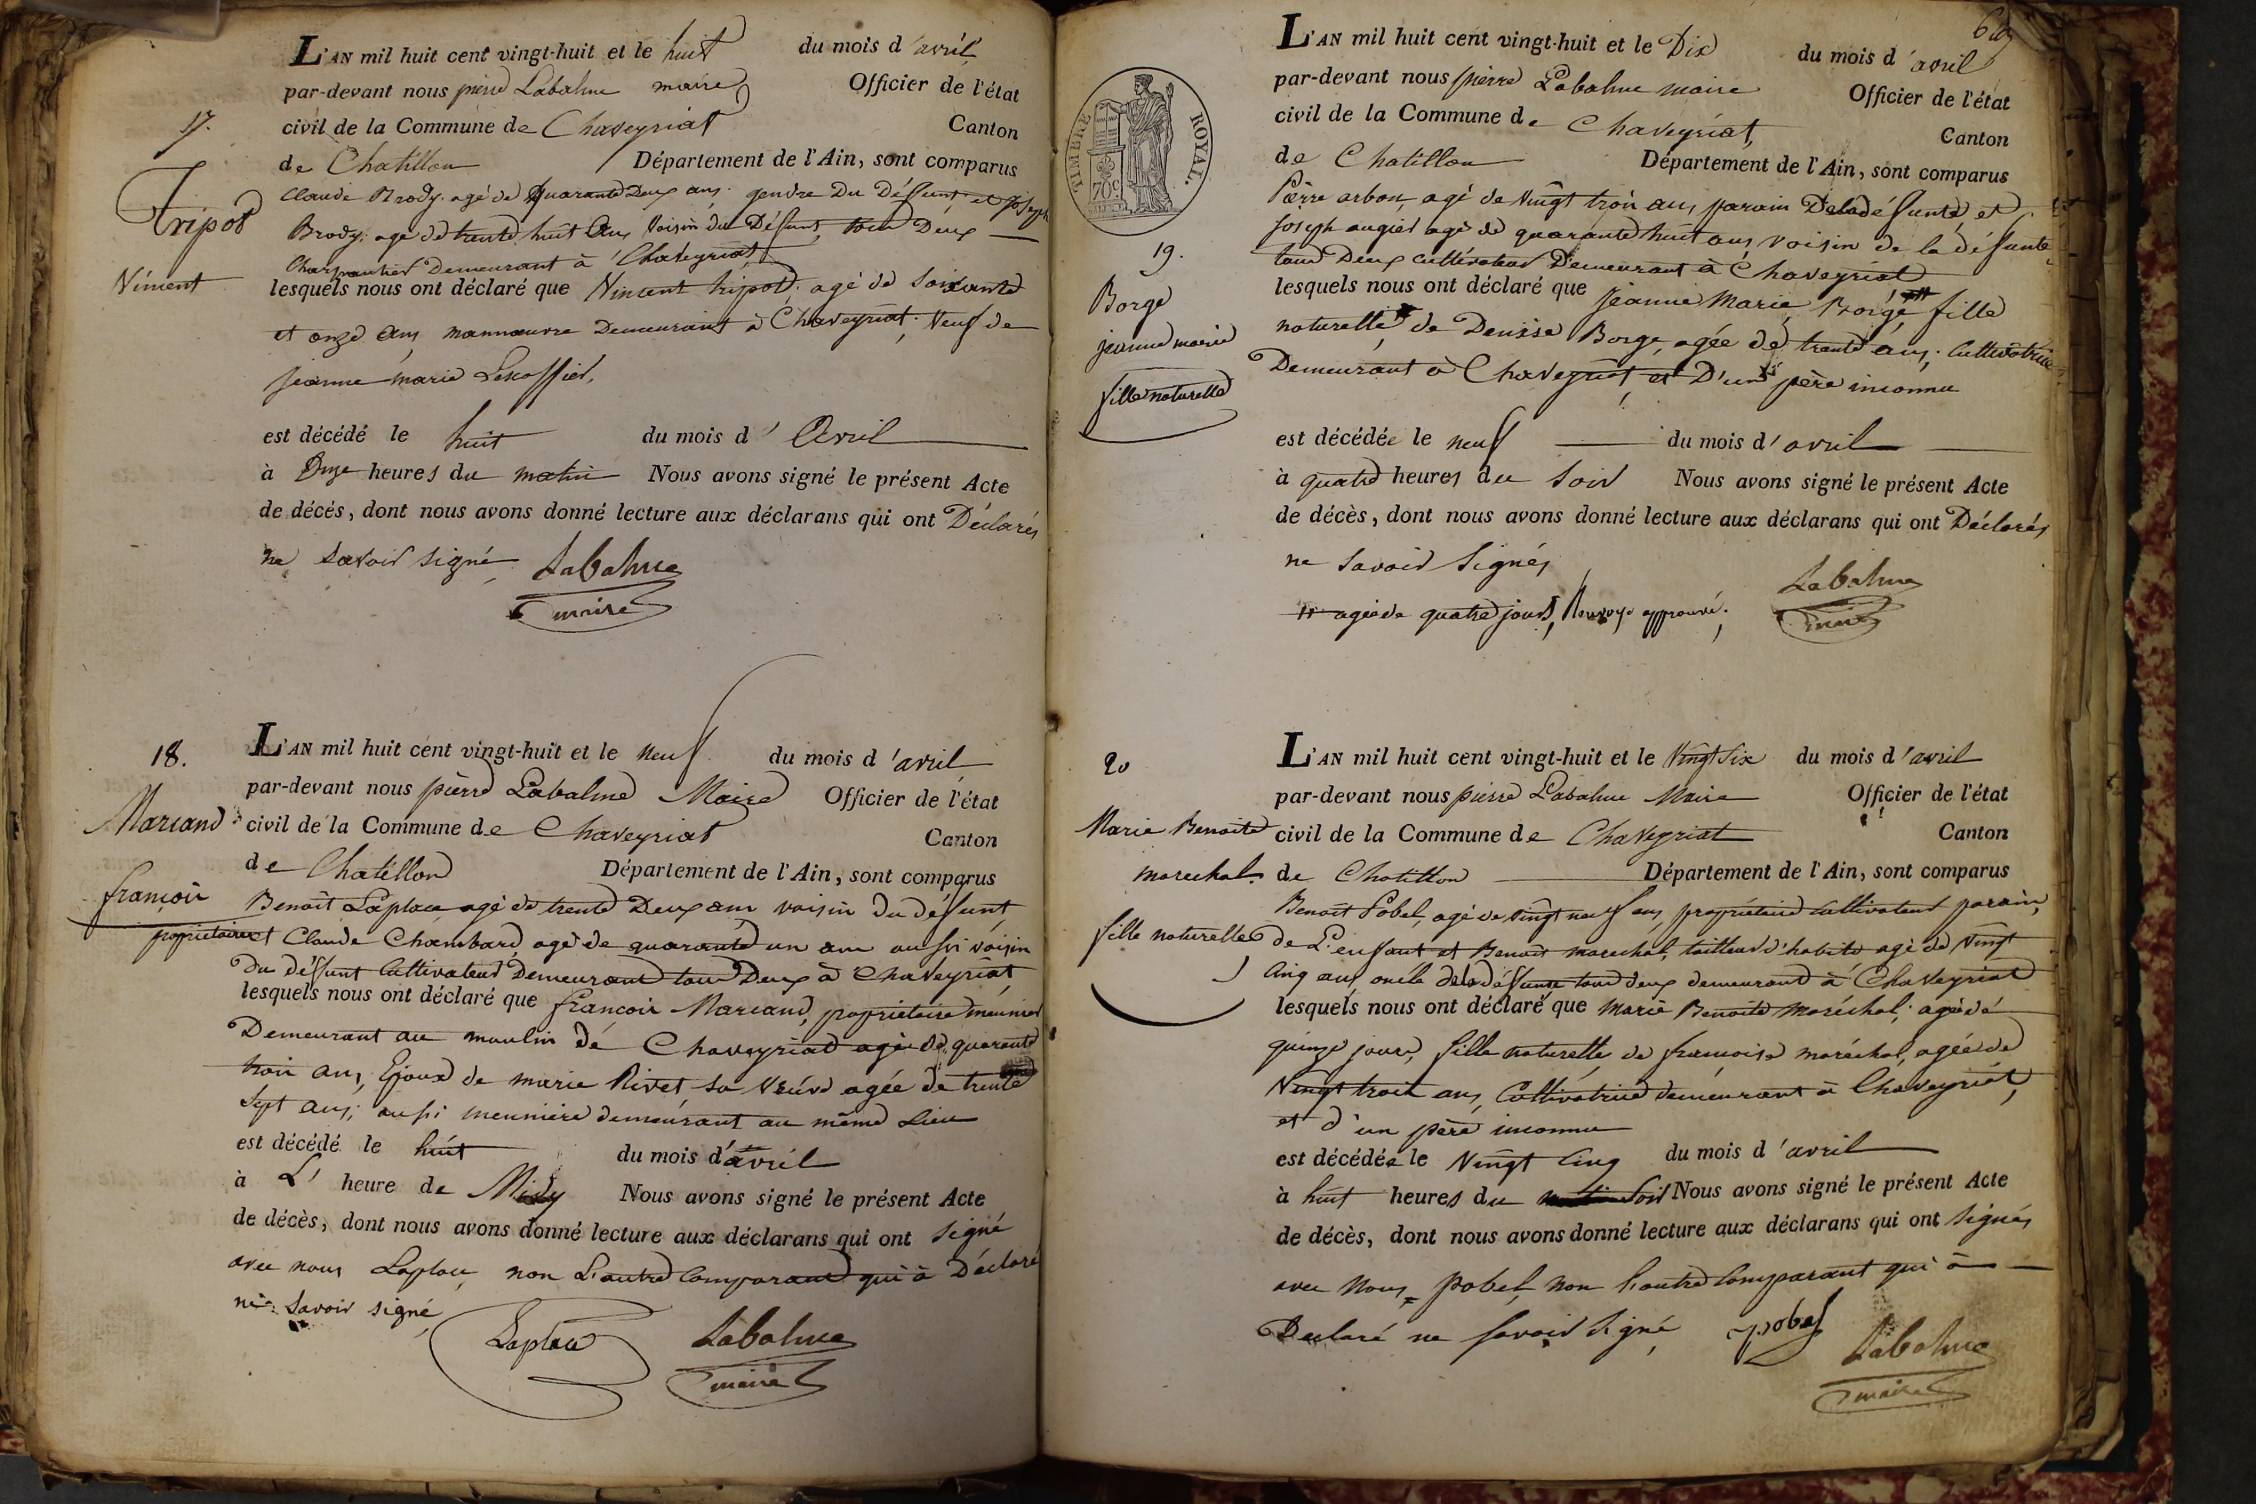 L'AN mil huit cent vingt-huit et le huit du mois d'avril
par-devant nous pierre Labalme maire Officier de l'état
civil de la Commune de Chaveyriat Canton
de Chatillon Département de l'Ain, sont comparus
Claude Brody agé de quarante Deux ans gendre Du Défunt et joseph
Brody agé de trente huit ans voisin du Défunt, tous Deux
Charpantier Demeurant à Chaveyriat
lesquels nous ont déclaré que Vincent tripot, agé de soixante
et onze ans, mannœuvre Demeurant à Chaveyriat, Veuf de
jeanne marie
est décédé le huit du mois d'Avril
à Onze heures du matin Nous avons signé le présent Acte
de décés, dont nous avons donné lecture aux déclarans qui ont Déclarés
ne savoir signé Labalme
maire
17.
Tripot
Vincent
18.
Marcand
françois
propriétaire
L'AN mil huit cent vingt-huit et le neuf du mois d'avril
par-devant nous pierre Labalme Maire Officier de l'état
civil de la Commune de Chaveyriat Canton
de Chatillon Département de l'Ain, sont comparus
Benoit Laplace agé de trente Deux ans voisin du défunt
et Claude Chambard agé de quarante un ans aussi voisin
Du défunt Cultivateurs Demeurant tous Deux à Chaveyriat
lesquels nous ont déclaré que françois Marcand, propriétaire meunier
Demeurant au moulin de Chaveyriat agé de quarante
trois ans, Epoux de marie Rivet, sa Veuve agée de trente
sept ans, aussi meunière demeurant au même Lieu
est décédé le huit du mois d'avril
à L' heure de Midy Nous avons signé le présent Acte
de décès, dont nous avons donné lecture aux déclarans qui ont signé
avec nous Laplace, non L'autre Comparant qui à Déclaré
ne savoir signé
Laplace Labalme
maire
60
TIMBRE ROYAL.
70c
19.
Borge
jeanne marie
fille naturelle
L'AN mil huit cent vingt-huit et le Dix du mois d'avril
par-devant nous pierre Labalme maire Officier de l'état
civil de la Commune de Chaveyriat, Canton
de Chatillon Département de l'Ain, sont comparus
Pierre arbon, agé de Vingt trois ans, parain De la défunte et
joseph augier agé de quarante huit ans voisin de la défunte
tous Deux cultivateur Demeurant à Chaveyriat
lesquels nous ont déclaré que jeanne Marie Borge fille
naturelle de Denise Borge, agée de trente ans, Cultivatrice
Demeurant à Chaveyriat, et D'un père inconnu
est décédée le neuf du mois d'avril
à quatre heures du soir Nous avons signé le présent Acte
de décès, dont nous avons donné lecture aux déclarans qui ont Déclarés
ne savoir Signés
agée de quatre jours, Renvoye approuvé. Labalme
maire
20
Marie Benoite
marechal.
fille naturelle
L'AN mil huit cent vingt-huit et le Vingt Six du mois d'avril
par-devant nous pierre Labalme Maire Officier de l'état
civil de la Commune de Chaveyriat Canton
de Chatillon Département de l'Ain, sont comparus
Benoit Pobel, agé de vingt neuf ans, propriétaire Cultivateur parain
de L'enfant et Benoit marechal, tailleur d'habits agé de vingt
Cinq ans, oncle de la défunte tous deux demeurant à Chaveyriat
lesquels nous ont déclaré que marie Benoite maréchal, agée de
quinze jours, fille naturelle de francoise maréchal, agée de
Vingt trois ans, Cultivatrice demeurant à Chaveyriat,
et d'un père inconnu
est décédée le Vingt Cinq du mois d'avril
à huit heures du matin Soir Nous avons signé le présent Acte
de décès, dont nous avons donné lecture aux déclarans qui ont signés
avec nous, pobel, non L'autre Comparant qui à
Declaré ne savoir signé, pobel
Labalme
maire